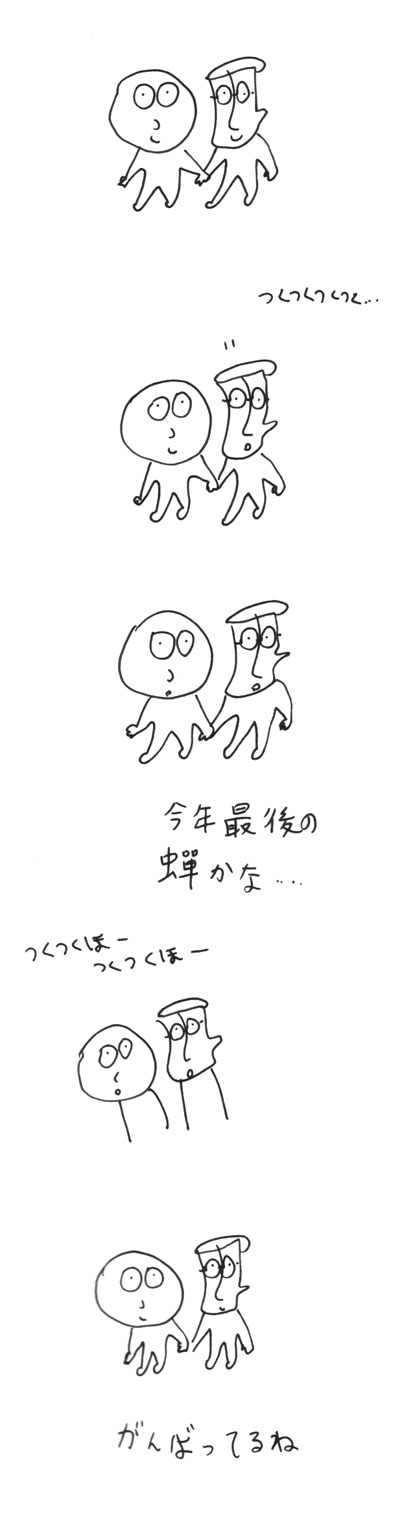 つくつくつくつく...
今年最後の
蝉かな....
つくつくほー
つくつくほー
がんばってるね